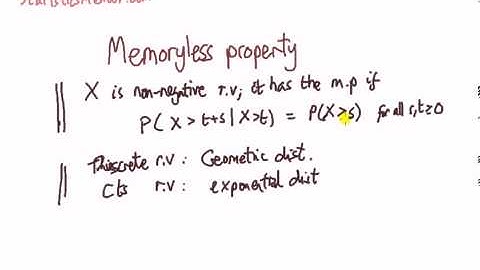 Memoryless property
X is non-negative r.v; it has the m.p if
P( X > t+s | X > t) = P(X > s) for all s,t ≥ 0
Discrete r.v : Geometric dist.
Cts r.v : exponential dist